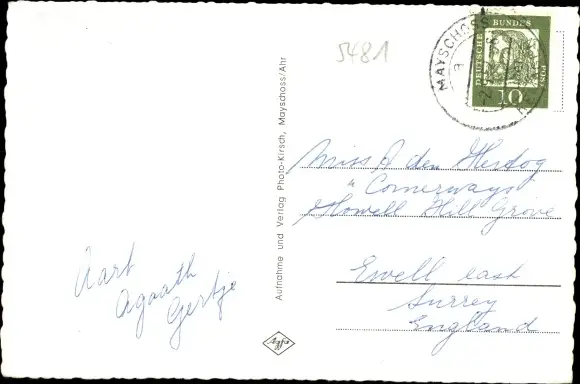 5481
MAYSCHOSS
DEUTSCHE BUNDESPOST
10
Aufnahme und Verlag Photo-Kirsch, Mayschoss/Ahr
Miss A den Hertog
"Cornerways
Howell Hill Grove
Ewell east
Surrey
England
Aart
Agaath
Gertje
Agfa